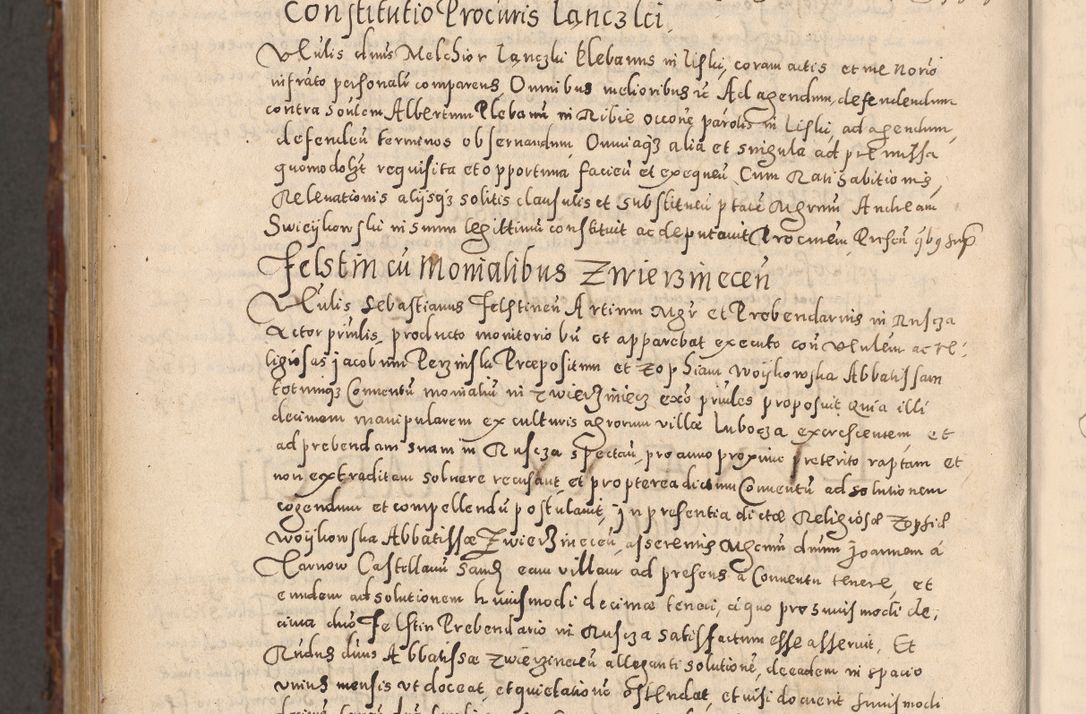 Constitutio Procuris Lanczlci
Vblis dnus Melchior Lanczki Plebanus in Liski, coram actis et me Norio
infrato personalr comparens, Omnibus melioribus rc Ad agendum, defendendum
contra Albertum Plebanu in Ribie occone parolis in Liski, ad agendum,
defendeñ terminos observandum, Omniaqz alia et singula ad premissa
quomodolzt requisita et opportuna facieñ et exequeñ, Cum Rati habitionis,
Relevationis alysqz solitis clausulis et substitueñ ptate Mgrum Andream
Swieykowski in suum legittimu constituit ac deputavit Procurem, Presen
Felstin cu Monialibus Zwierzineceñ
Vblis Sebastianus Felstineñ Artium Mgr et Prebendarius in Rusza
Actor prnlis, producto monitorio et apparebat executo con Vblem ac re,
ligiosas Jacobum Perzinski Præpositum et Zophiam Woijkowska Abbatissam
totumqz Conventu monialiu in Zwierziniecz exo prnles proposuit, Quia illi
decimam manipularem ex culturis agrorum villæ Lubocza excrescentem et
ad prebendam suam in Rusza spectañ, pro anno proxime preterito raptam et
non extraditam solvere recusant, et propterea dictum Conventu ad solutionem
cogendum et compellendu postulavit, In presentia dictæ Religiosæ Zophiæ
Woijkowska Abbatissæ Zwierzineceñ, asserentis Mgcum dnum Joannem a
Tarnow Castellanu Sandz eam villam ad presens a Conventu tenere, et
eundem ad solutionem huiusmodi decimæ teneri, a quo pro huiusmodi de,
cima dno Felstin Prebendario in Rusza satisfactum esse asseruit, Et
Rndus dnus Abbatissæ Zwierzineceñ alleganti solutione, decedem in spacio
unius mensis ut doceat, et quietationu ostendat, et nisi docuerit huiusmodi